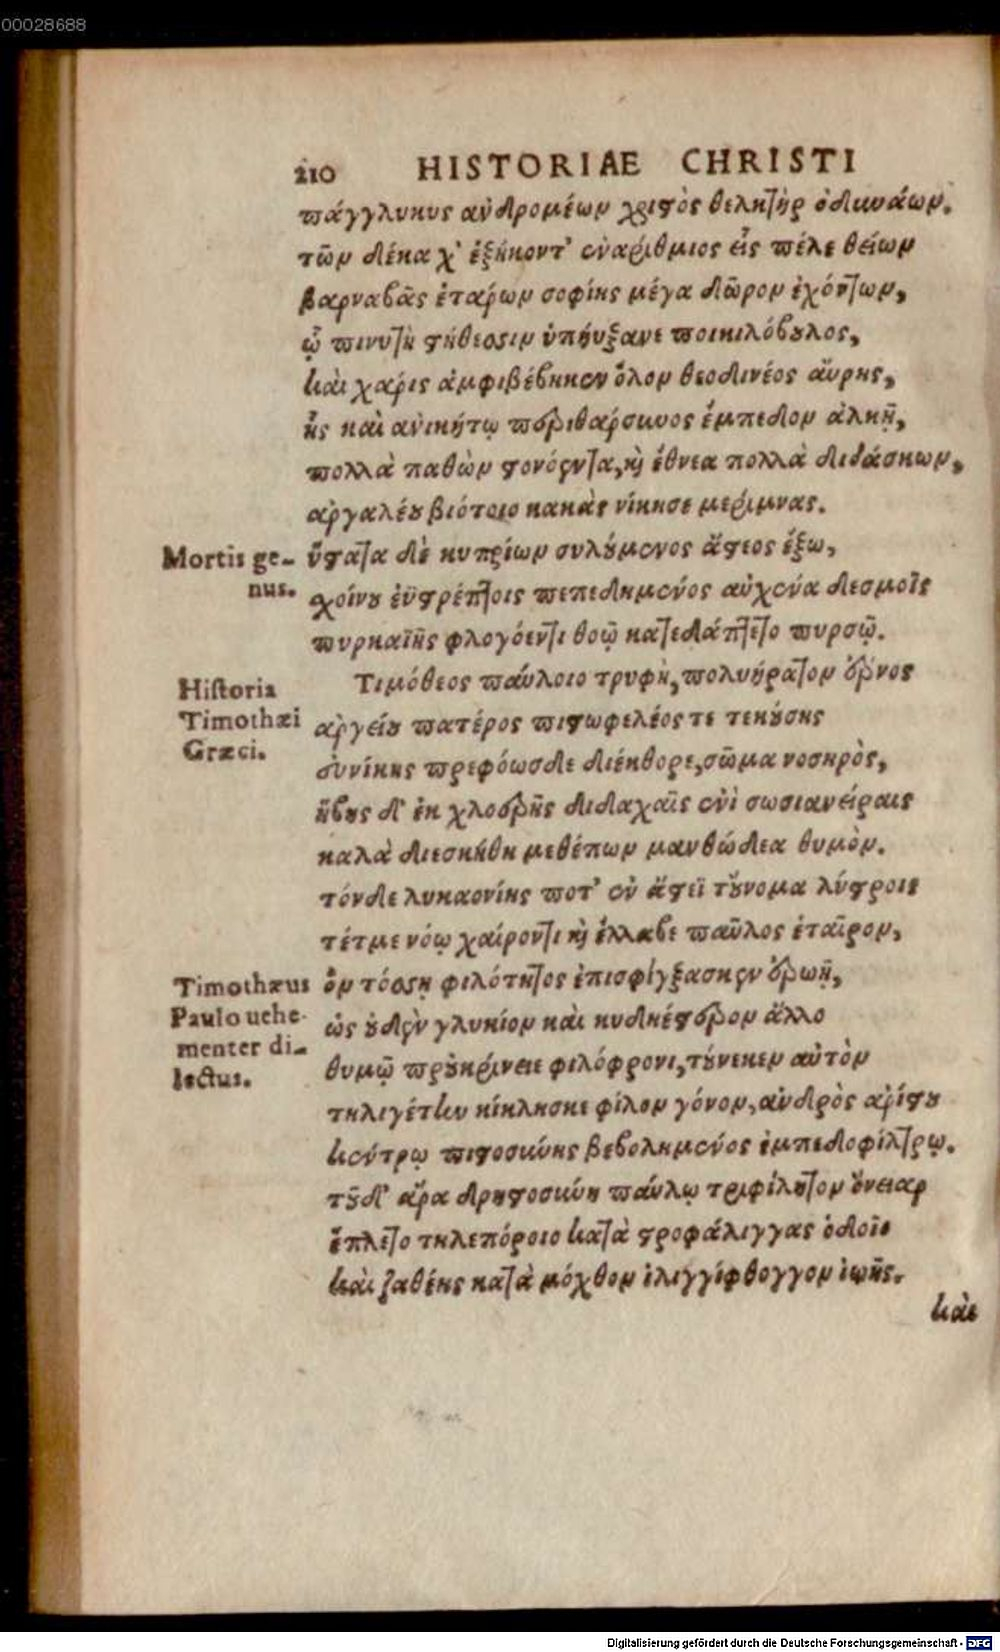 00028688
210 HISTORIAE CHRISTI
πάγγλυκυς ἀνδρομέων χριστὸς θελητὴρ ὀδυνάων.
τῶν δέκα χ' ἑξήκοντ' ἐναρίθμιος εἷς πέλε θείων
βαρναβᾶς ἑτάρων σοφίης μέγα δῶρον ἐχόντων,
ᾧ πινυτὴ στήθεσσιν ὑπήυξανε ποικιλόβουλος,
καὶ χάρις ἀμφιβέβηκεν ὅλον θεοδινέος αὔρης,
ἧς καὶ ἀνικήτῳ περιθάρσυνος ἔμπεδον ἀλκῇ,
πολλὰ παθὼν στονόεντα, καὶ ἔθνεα πολλὰ διδάσκων,
ἀργαλέου βιότοιο κακὰς νίκησε μερίμνας.
Mortis ge-
nus.
ὕστατα δὲ κυπρίων συλούμενος ἄστεος ἔξω,
σχοίνου ἐϋστρέπτοις πεπεδημένος αὐχένα δεσμοῖς
πυρκαϊῆς φλογόεντι θοῷ κατεδάπτετο πυρσῷ.
Historia
Timothæi
Græci.
Τιμόθεος παύλοιο τρυφὴ, πολυήρατον ἔρνος
ἀργείου πατέρος πιστωφελέος τε τεκούσης
εὐνίκης πρεφόωσδε διέκθορε, σῶμα νοσηρὸς,
ἥβους δ' ἐκ χλοερῆς διδαχαῖς ἐνὶ σωσιανείραις
καλὰ διεσκήθη μεθέπων μανθώδεα θυμὸν.
τόνδε λυκαονίης ποτ' ἐν ἄστεϊ τοὔνομα λύστροις
τέτμε νόῳ χαίροντι καὶ ἔλλαβε παῦλος ἑταῖρον,
Timothæus
Paulo uehe-
menter di-
lectus.
ὃν τόσσῃ φιλότητος ἐπισφίγξασκεν ἐρωῇ,
ὡς οὐδὲν γλυκίον καὶ κυδήεστερον ἄλλο
θυμῷ προὔκρινειε φιλόφρονι, τούνεκεν αὐτὸν
τηλιγέτην κίκλησκε φίλον γόνον, ἀνδρὸς ἀρίστου
κέντρῳ πιστοσύνης βεβολημένος ἐμπεδοφίλτρῳ.
τοῦδ' ἄρα δρηστοσύνη παύλῳ τριφίλητον ὄνειαρ
ἔπλετο τηλεπόροιο κατὰ στροφάλιγγας ὁδοῖο
καὶ ζαθέης κατὰ μόχθον ἑλιγγίφθογγον ἰωῆς.
καὶ
Digitalisierung gefördert durch die Deutsche Forschungsgemeinschaft - DFG